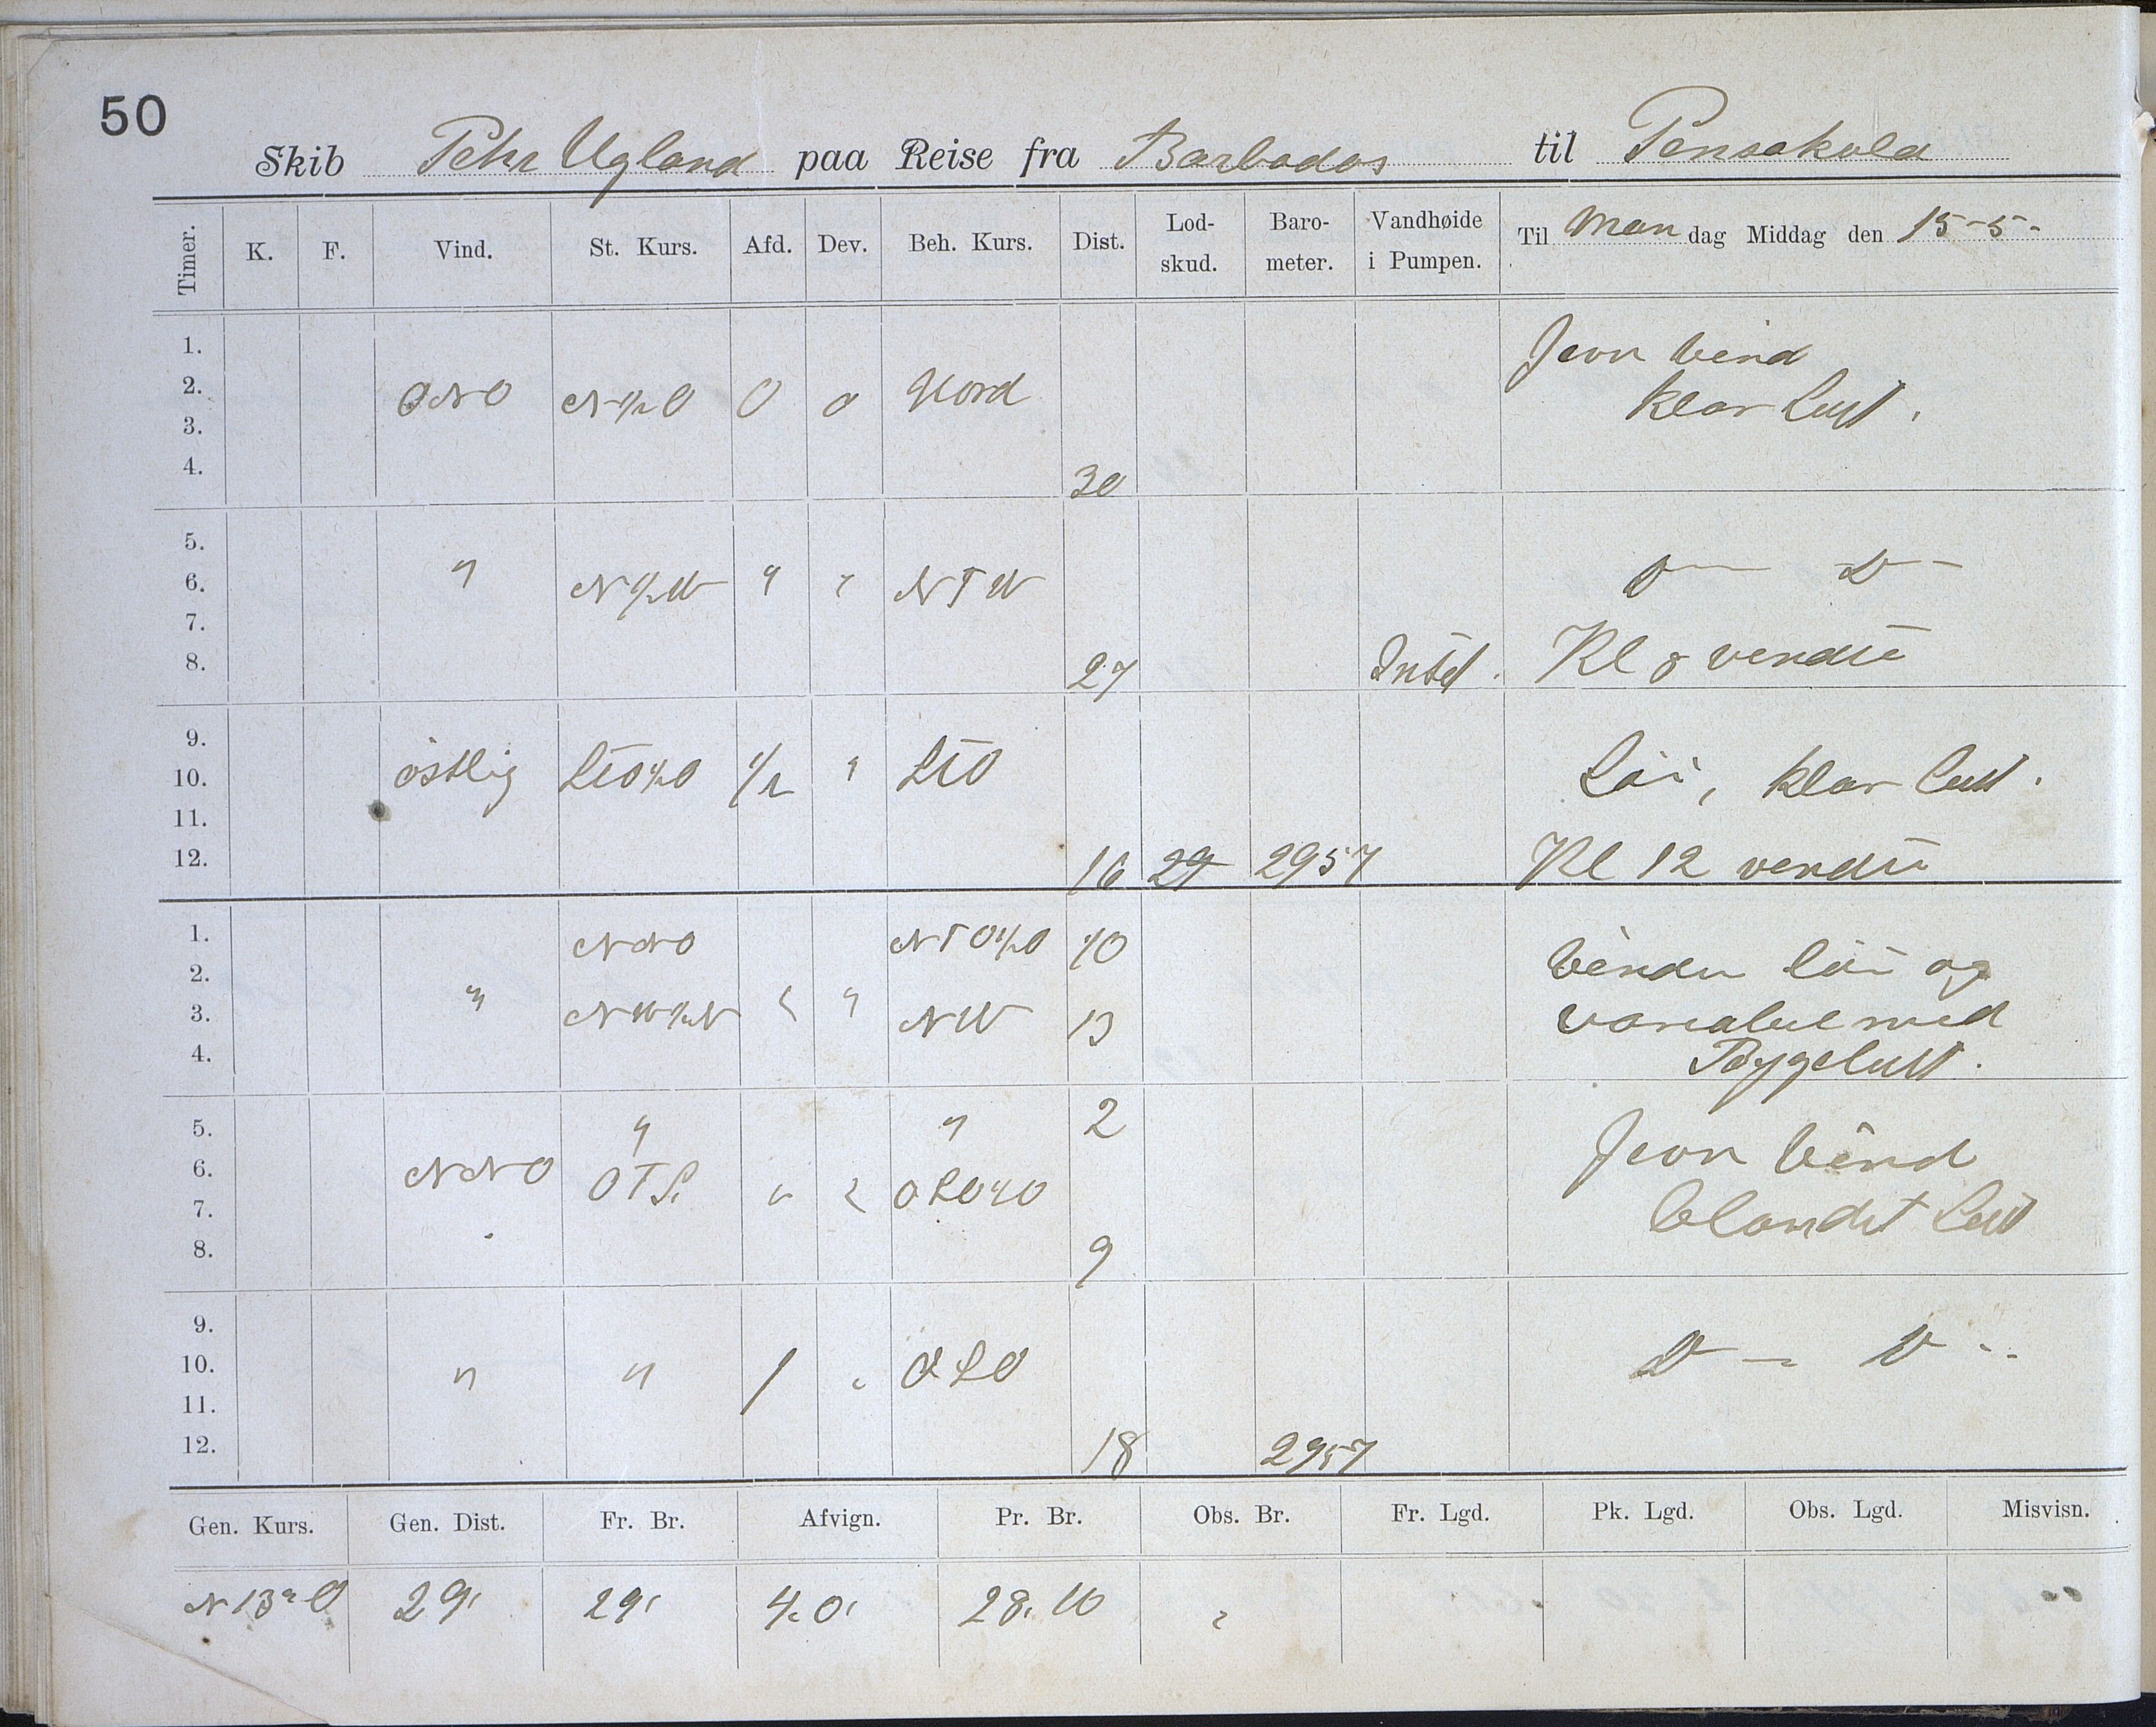 50
Skib Peter Ugland paa Reise fra Barbados til Pensakola
Timer. K. F. Vind. St. Kurs. Afd. Dev. Beh. Kurs. Dist. Lod-skud. Baro-meter. Vandhøide i Pumpen. Til Man dag Middag den 15-5-
1. Jevn Vind
2. ONO N½O 0 0 Nord klar Luft.
3.
4. 30
5.
6. " N½W " " NTW D— D—
7.
8. 27 Intet. Kl 8 vendte
9.
10. östlig STO½O ½ " STO Löi, klar Luft.
11.
12. 16 29 2957 Kl 12 vendte
1. NNO NTO½O 10 Vinden löi og
2. "
3. NW½N " " NW 13 variabel med
4. Bygeluft.
5. " " 2 Jevn Vind
6. NNO OTS. " " OSO½O
7. blandet Luft
8. 9
9.
10. " " 1 " OSO D — D --
11.
12. 18 2957
Gen. Kurs. Gen. Dist. Fr. Br. Afvign. Pr. Br. Obs. Br. Fr. Lgd. Pk. Lgd. Obs. Lgd. Misvisn.
N 13° O 29' 29' 28.10